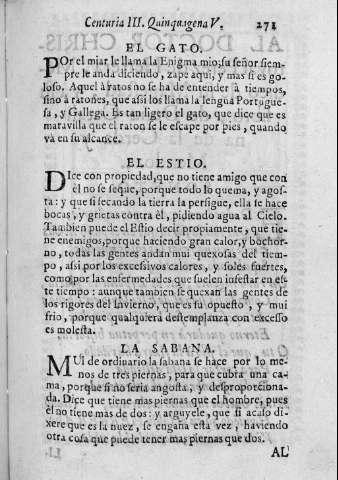 Centuria III. Quinquagena V. 271
EL GATO.
POr el miar le llama la Enigma mio; su señor siem-
pre le anda diciendo, zape aqui, y mas si es go-
loso. Aquel à ratos no se ha de entender à tiempos,
sino à ratones, que assi los llama la lengua Portugue-
sa, y Gallega. Es tan ligero el gato, que dice que es
maravilla que el raton se le escape por pies, quando
và en su alcance.
EL ESTIO.
DIce con propiedad, que no tiene amigo que con
èl no se seque, porque todo lo quema, y agos-
ta: y que si secando la tierra la persigue, ella se hace
bocas, y grietas contra èl, pidiendo agua al Cielo.
Tambien puede el Estio decir propiamente, que tie-
ne enemigos, porque haciendo gran calor, y bochor-
no, todas las gentes andan mui quexosas del tiem-
po, assi por los excessivos calores, y soles fuertes,
como por las enfermedades que suelen infestar en es-
te tiempo: aunque tambien se quexan las gentes de
los rigores del Invierno, que es su opuesto, y mui
frio, porque qualquiera destemplanza con excesso
es molesta.
LA SABANA.
MUi de ordinario la sabana se hace por lo me-
nos de tres piernas, para que cubra una ca-
ma, porque si no seria angosta, y desproporciona-
da. Dice que tiene mas piernas que el hombre, pues
èl no tiene mas de dos: y arguyele, que si acaso di-
xere que es la nuez, se engaña esta vez, haviendo
otra cosa que puede tener mas piernas que dos.
AL